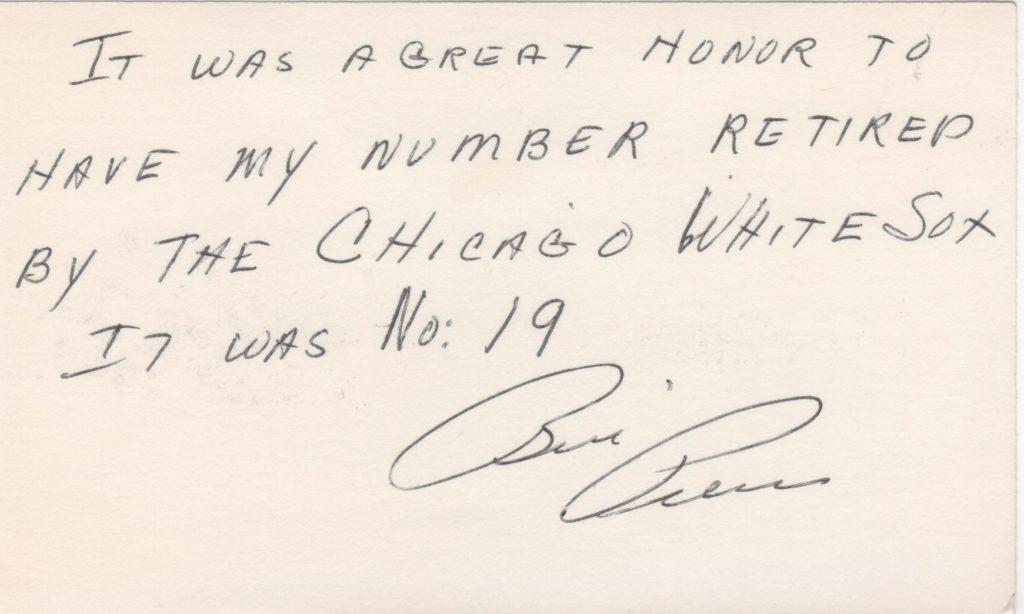 IT WAS A GREAT HONOR TO
HAVE MY NUMBER RETIRED
BY THE CHICAGO WHITE SOX
IT WAS No: 19
Bill Pierce